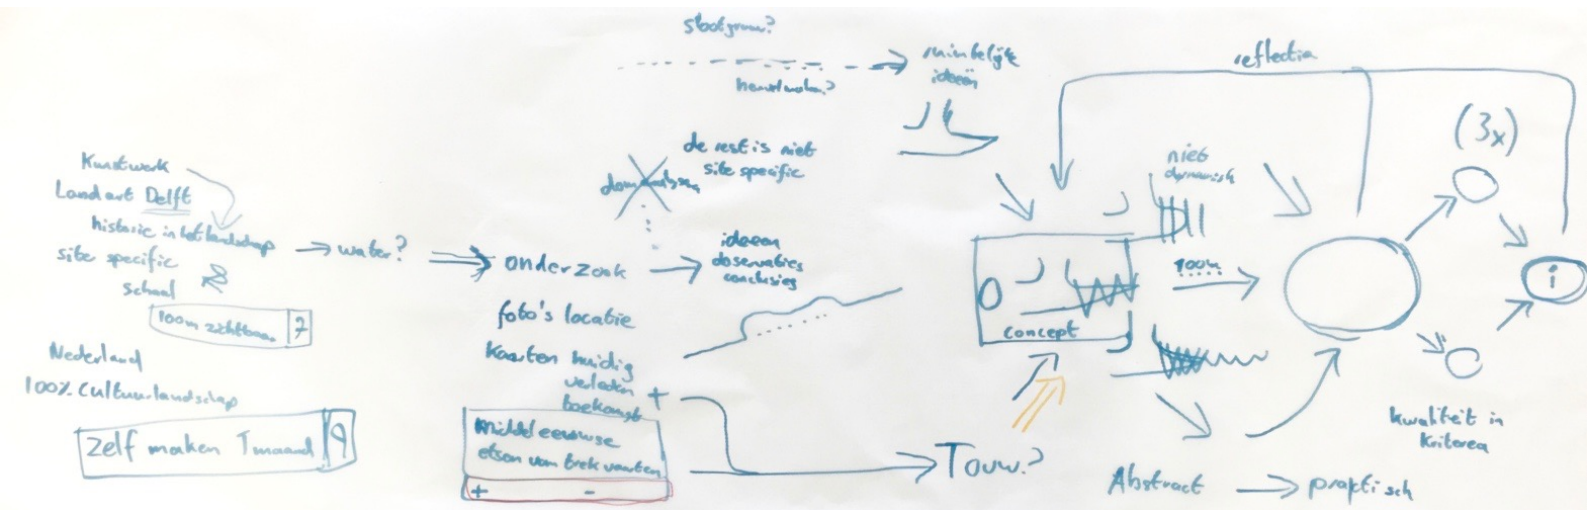 Kunstwerk
Land art Delft
historie in het landschap
site specific
schaal
100m zichtbaar 7
Nederland
100% Cultuurlandschap
zelf maken 1 maand 9
water?
onderzoek
foto's locatie
kaarten huidig
verleden
toekomst
+
Middeleeuwse
etsen van trekvaarten
+ -
de rest is niet
site specific
ideeën
observaties
conclusies
ideeën
Touw?
concept
niet
dynamisch
100m
reflectie
(3x)
i
kwaliteit in
kriterea
Abstract
praktisch